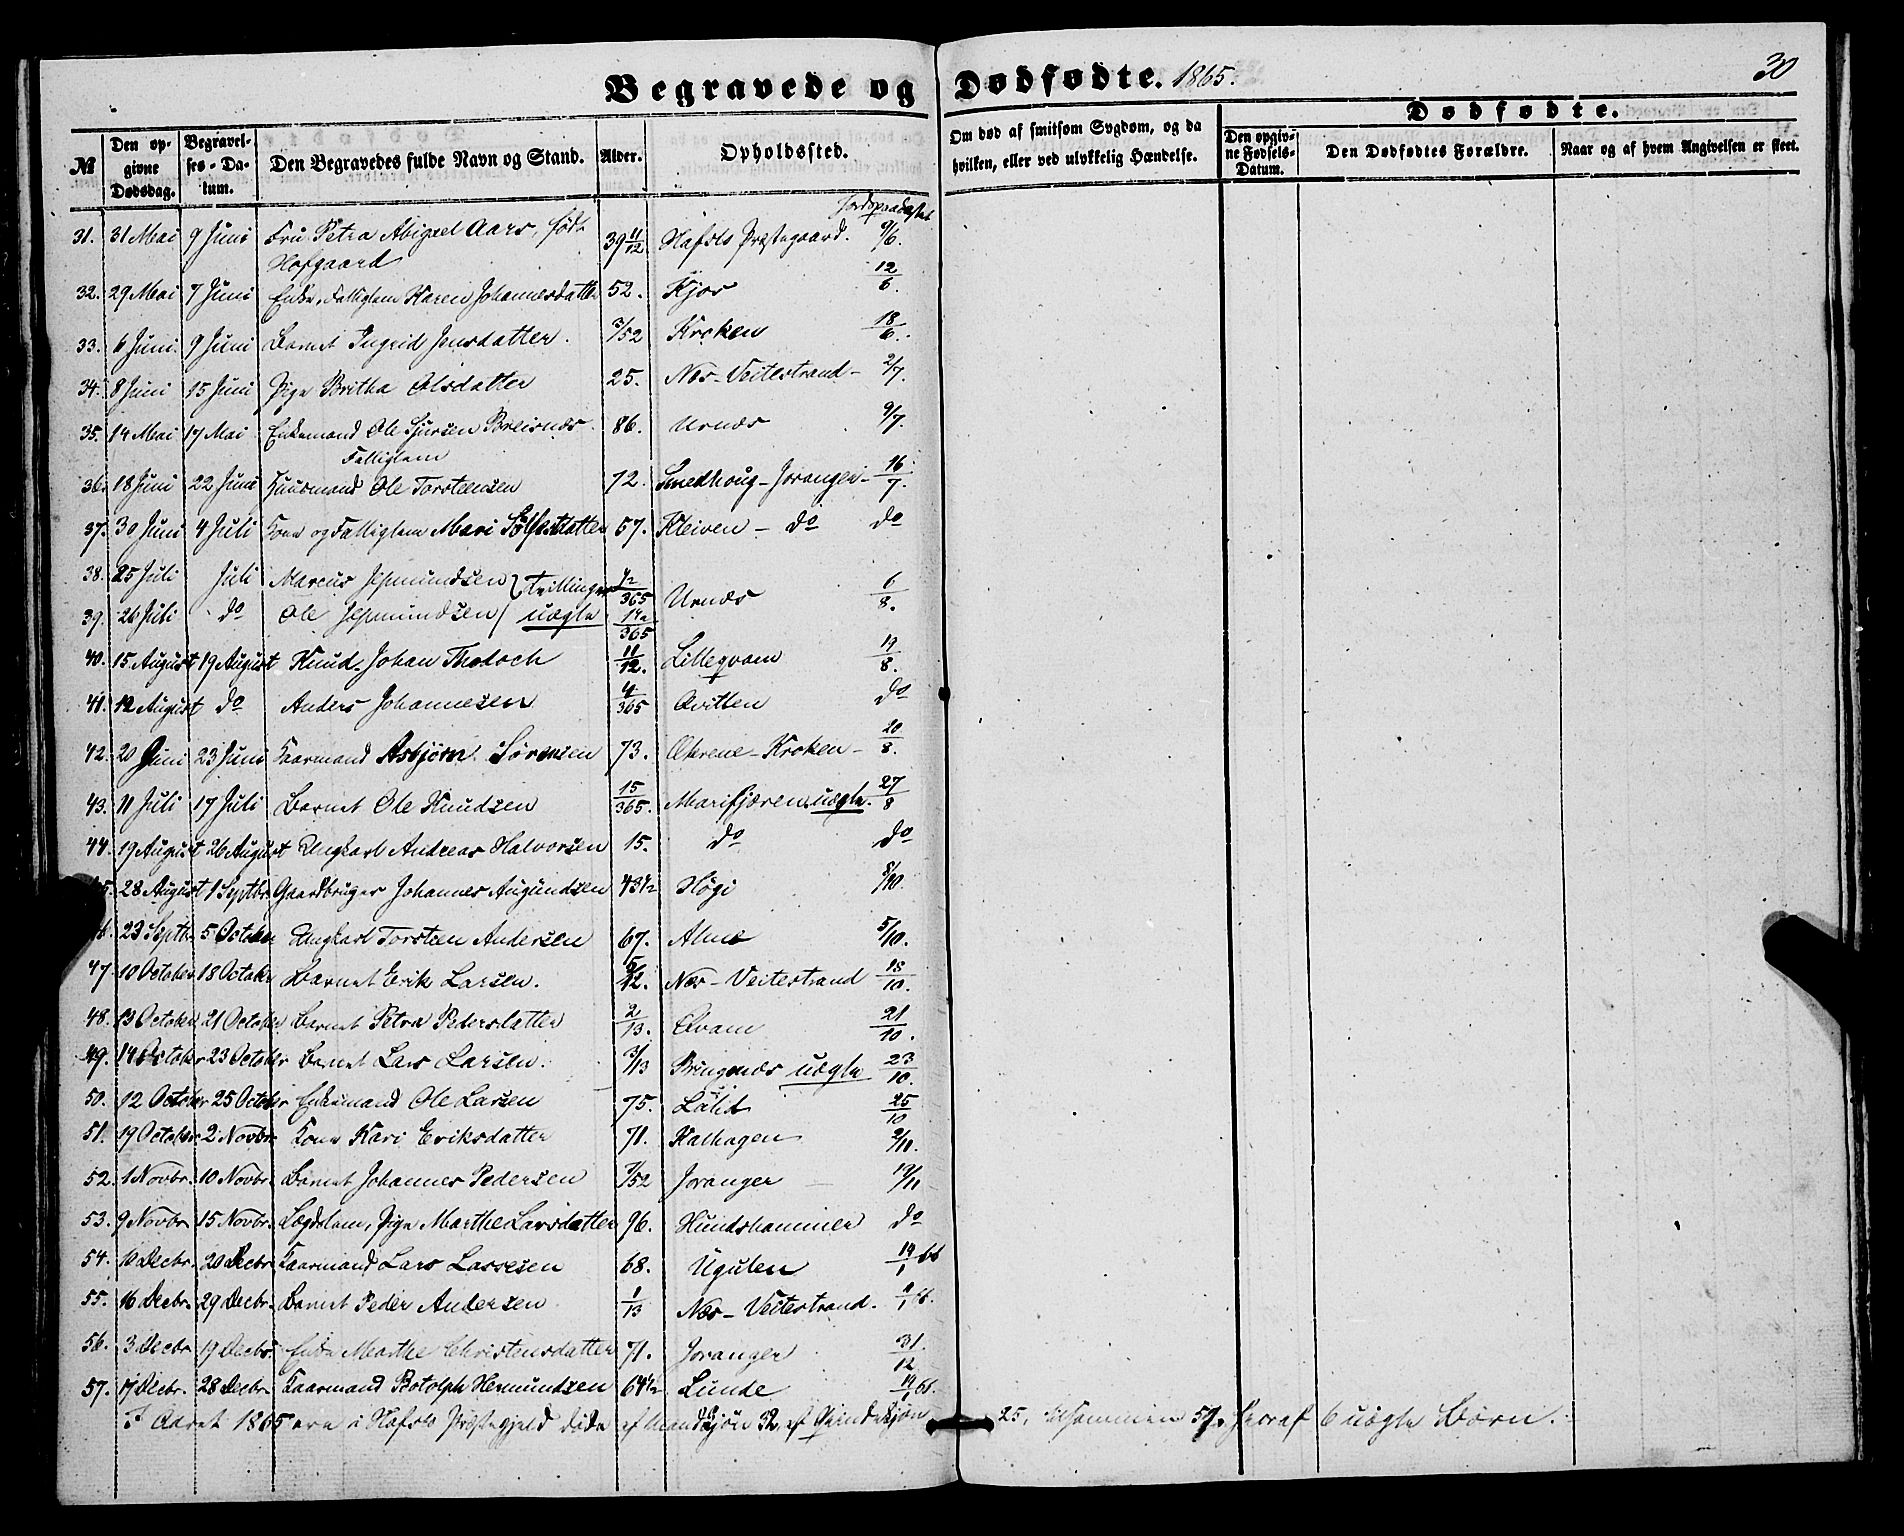 Begravede og Dødfødte. 1865.
30
№
Den opgivne Dødsdag.
Begravelses-Datum.
Den Begravedes fulde Navn og Stand.
Alder.
Opholdssted.
Om død af smitsom Sygdom, og da hvilken, eller ved ulykkelig Hændelse.
Dødfødte.
Den opgivne Fødsels-Datum.
Den Dødfødtes Forældre.
Naar og af hvem Angivelsen er skeet.
Jordspaakastet
31. 31 Mai 9 Juni Fru Petra Abigael Aars, født Hofgaard 39 11/12 Hafslo Præstegaard. 9/6.
32. 29 Mai 7 Juni Enke, Fattiglem Karen Johannesdatter 52. Kjos 12/6.
33. 6 Juni. 9 Juni Barnet Ingrid Jensdatter. 3/52 Kroken 18/6.
34. 8 Juni 15 Juni Pige Britha Olsdatter 25. Nes-Veitestrand - 2/7.
35. 14 Mai 17 Mai Enkemand Ole Sjursen Breisnæs. Fattiglem 86. Urnæs 9/7.
36. 18 Juni 22 Juni Huusmand Ole Torsteensen 72. Smedhoug - Joranger - 16/7.
37. 30 Juni 4 Juli Kone og Fattiglem Mari 57. Kleiven - do do
38. 25 Juli Juli Marcus Jetmundsen } Tvillinger 1/2/365 Urnæs 6/8.
39. 26 Juli do Ole Jetmundsen } uægte 1 1/2/365
40. 15 August 19 August Knud Johan 11/12. Lilleqvam 19/8.
41. 12 August do Anders Johannesen 4/365 Qvitten do
42. 20 Juni 23 Juni Kaarmand Asbjørn Sørensen 73. Øhrene - Kroken - 20/8.
43. 11 Juli 17 Juli Barnet Ole Knudsen 15/365. Marifjæren uægte. 27/8
44. 19 August 26 August Ungkarl Andreas Halvorsen 15. do do
5. 28 August 1 Septbr. Gaardbruger Johannes Augundsen 43 1/2 Høgi 5/10.
6. 23 Septbr. 5 October Ungkarl Torsteen Andersen 67. Alme 5/10.
47. 10 October 18 October Barnet Erik Larsen. 5/12. Nes - Veitestrand 18/10.
48. 13 October 21 October Barnet Petra Pedersdatter 2/13. Qvam 21/10.
49. 14 October 23 October Barnet Lars Larsen. 3/13 Bringenæs uægte 23/10.
50. 12 October 25 October Enkemand Ole Larsen 75. Lølid 25/10
51. 19 October 2 Novbr. Kone Kari Eriksdatter 71. Kalhagen 2/11.
52. 1 Novbr. 10 Novbr. Barnet Johannes Pedersen 3/52 Joranger 19/11
53. 9 Novbr. 15 Novbr. Lægdslem, Pige Marthe Larsdatter 96. Hundshammer do
54. 10 Decbr. 20 Decbr. Kaarmand Lars Lassesen 68. Ugulen 14/1 66
55. 16 Decbr. 29 Decbr. Barnet Peder Andersen 1/13 Nes - Veitestrand.
56. 3 Decbr. 19 Decbr. Enke Marthe Christensdatter 71. Joranger 31/12
57. 17 Decbr. 28 Decbr. Kaarmand Botolph Hermundsen 64 1/2 Lunde 14/1 66.
I Aaret 1865 ere i Hafslo Præstegjeld døde af Mandkjøn 32, af Qvindekjøn 25, tilsammen 57, heraf 6 uægte Børn.